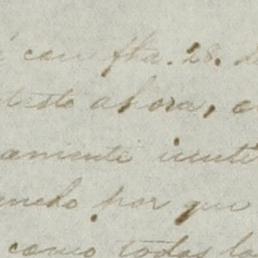 con fha. 28.
ahora,
amente inuti
endo por que
como todas la